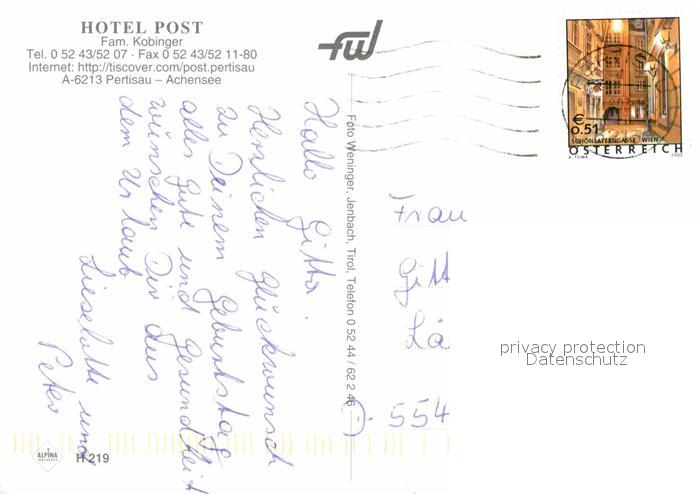 HOTEL POST
Fam. Kobinger
Tel. 0 52 43/52 07 · Fax 0 52 43/52 11-80
Internet: http://tiscover.com/post.pertisau
A-6213 Pertisau – Achensee
fwl
€
0.51
SCHÖNLATERNGASSE WIEN
ÖSTERREICH
A. TUMA 2002
Hallo Gitta.
Herzlichen Glückwunsch
zu Deinem Geburtstag
alles Gute und Gesundheit
wünschen Dir aus
dem Urlaub
Lieselotte und
Peter
Foto Weninger, Jenbach, Tirol, Telefon 0 52 44 / 62 2 46
Frau
Gitt
Lä
D- 554
privacy protection
Datenschutz
ALPINA
H 219